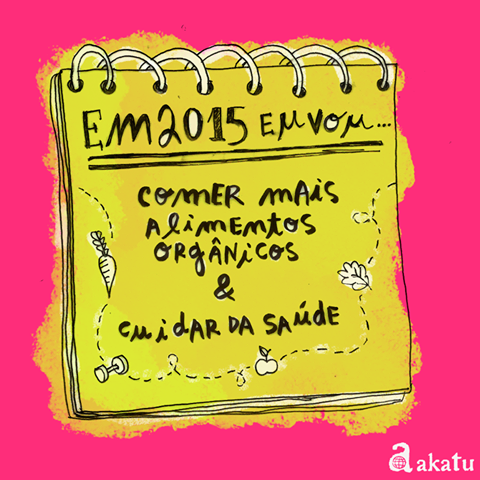 EM 2015 EU VOU...
COMER MAIS
ALIMENTOS
ORGÂNICOS
&
CUIDAR DA SAÚDE
akatu